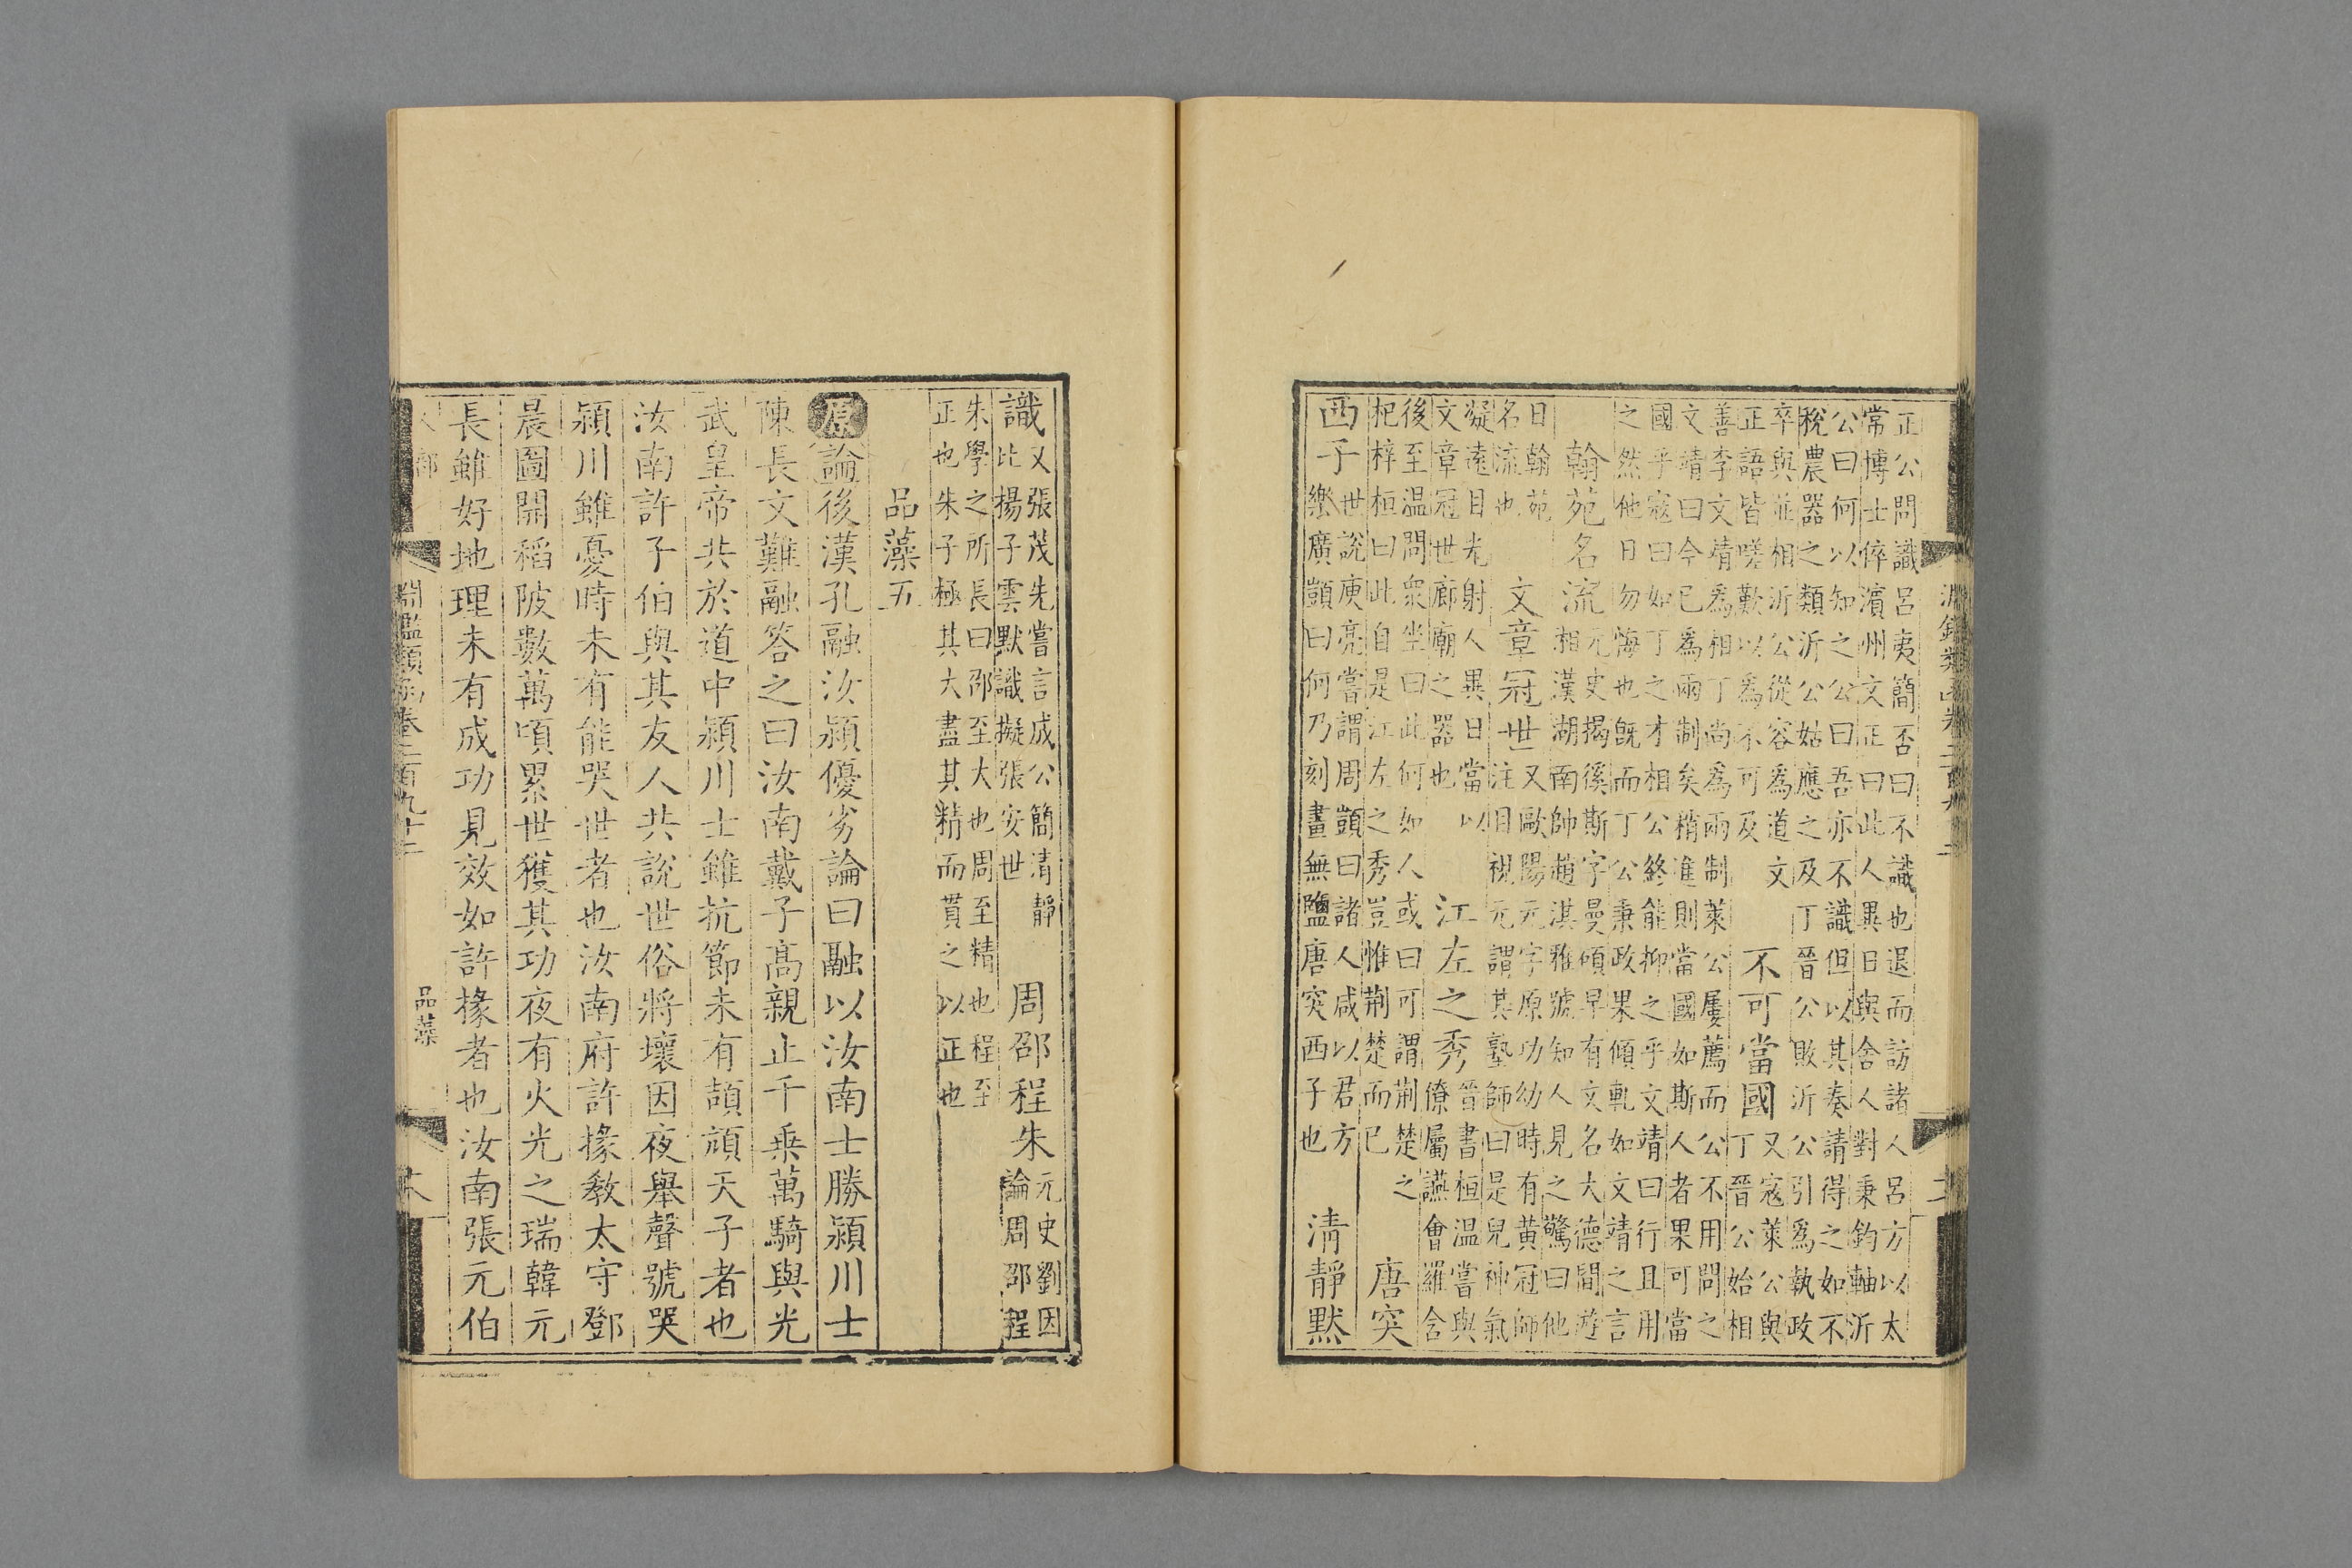 正公問識呂夷簡否曰不識也退而訪諸人呂方以太
常博士倅濱州文正曰此人異日與舍人對秉鈞軸沂
公曰何以知之公曰吾亦不識但以其奏請得之如不
稅農器之類沂公姑應之及丁晉公敗沂公引爲執政
卒與並相沂公從容爲道文
正語皆嗟歎以爲不可及
不可當國
又寇萊公與
丁晉公始相
善李文靖爲相丁尚爲兩制萊公屢薦而公不用問之
文靖曰今已爲兩制矣稍進則當國如斯人者果可當
國乎寇曰如丁之才相公終能抑之乎文靖曰行且用
之然他日勿悔也旣而丁公秉政果傾軋如文靖之言
翰苑名流
元史揭徯斯字曼碩早有文名大德間遊
相漢湖南帥趙淇雅號知人見之驚曰他
日翰苑
名流也
文章冠世
又歐陽元字原功幼時有黃冠師
注目視元謂其塾師曰是兒神氣
凝遠目光射人異日當以
文章冠世廊廟之器也
江左之秀
晉書桓溫嘗與
僚屬讌會羅含
後至溫問衆坐曰此何如人或曰可謂荆楚之
杞梓桓曰此自是江左之秀豈惟荆楚而已
唐突
西子
世說庾亮嘗謂周顗曰諸人咸以君方
樂廣顗曰何乃刻畫無鹽唐突西子也
清靜默
識
又張茂先嘗言成公簡清靜
比揚子雲默識擬張安世
周邵程朱
元史劉因
論周邵程
朱學之所長曰邵至大也周至精也程至
正也朱子極其大盡其精而貫之以正也
品藻五
原論後漢孔融汝潁優劣論曰融以汝南士勝潁川士
陳長文難融答之曰汝南戴子高親止千乘萬騎與光
武皇帝共於道中潁川士雖抗節未有頡頏天子者也
汝南許子伯與其友人共說世俗將壞因夜舉聲號哭
潁川雖憂時未有能哭世者也汝南府許掾教太守鄧
晨圖開稻陂數萬頃累世獲其功夜有火光之瑞韓元
長雖好地理未有成功見效如許掾者也汝南張元伯
淵鑑類函卷二百九十二
品藻